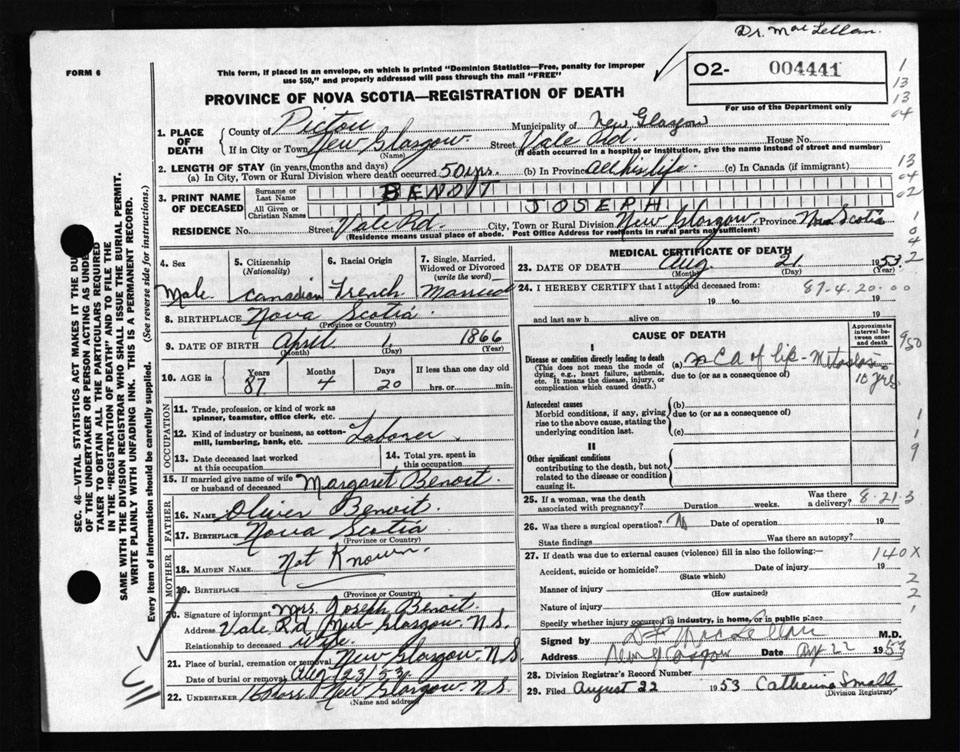 Dr. MacLellan.
FORM 6
This form, if placed in an envelope, on which is printed "Dominion Statistics—Free, penalty for improper
use $50," and properly addressed will pass through the mail "FREE"
02- 004441
For use of the Department only
PROVINCE OF NOVA SCOTIA—REGISTRATION OF DEATH
1. PLACE OF DEATH
County of Pictou Municipality of New Glasgow
If in City or Town New Glasgow. Street Vale Rd. House No.
(Name) (If death occurred in a hospital or institution, give the name instead of street and number)
2. LENGTH OF STAY (in years, months and days)
(a) In City, Town or Rural Division where death occurred 50 yrs. (b) In Province All his life (c) In Canada (if immigrant)
3. PRINT NAME OF DECEASED
Surname or Last Name BENOIT
All Given or Christian Names JOSEPH
RESIDENCE No. Street Vale Rd. City, Town or Rural Division New Glasgow. Province Nova Scotia
(Residence means usual place of abode. Post Office Address for residents in rural parts not sufficient)
SEC. 46—VITAL STATISTICS ACT MAKES IT THE DU
OF THE UNDERTAKER OR PERSON ACTING AS UNDER
TAKER TO OBTAIN ALL THE PARTICULARS REQUIRED
IN THE "REGISTRATION OF DEATH" AND TO FILE THE
SAME WITH THE DIVISION REGISTRAR WHO SHALL ISSUE THE BURIAL PERMIT.
WRITE PLAINLY WITH UNFADING INK. THIS IS A PERMANENT RECORD.
Every item of information should be carefully supplied. (See reverse side for instructions.)
4. Sex Male
5. Citizenship (Nationality) Canadian
6. Racial Origin French
7. Single, Married, Widowed or Divorced (write the word) Married
8. BIRTHPLACE Nova Scotia.
(Province or Country)
9. DATE OF BIRTH April 1, 1866
(Month) (Day) (Year)
10. AGE in Years 87 Months 4 Days 20 If less than one day old hrs. or min.
OCCUPATION
11. Trade, profession, or kind of work as
spinner, teamster, office clerk, etc.
12. Kind of industry or business, as cotton-
mill, lumbering, bank, etc. Laborer.
13. Date deceased last worked
at this occupation
14. Total yrs. spent in
this occupation
15. If married give name of wife
or husband of deceased Margaret Benoit.
FATHER
16. NAME Oliver Benoit.
17. BIRTHPLACE Nova Scotia
(Province or Country)
MOTHER
18. MAIDEN NAME Not Known.
19. BIRTHPLACE
(Province or Country)
20. Signature of informant Mrs. Joseph Benoit.
Address Vale Rd. New Glasgow. N.S.
Relationship to deceased wife.
21. Place of burial, cremation or removal New Glasgow. N.S.
Date of burial or removal Aug 23/53
22. UNDERTAKER New Glasgow. N.S.
(Name and address)
MEDICAL CERTIFICATE OF DEATH
23. DATE OF DEATH Aug 21 1953
(Month) (Day) (Year)
24. I HEREBY CERTIFY that I attended deceased from:
19 to 19
and last saw h alive on 19
87-4-20-00
CAUSE OF DEATH
Approximate interval between onset and death
I
Disease or condition directly leading to death
(This does not mean the mode of
dying, e.g., heart failure, asthenia,
etc. It means the disease, injury, or
complication which caused death.)
(a) CA of lip 10 yrs
due to (or as a consequence of)
Antecedent causes
Morbid conditions, if any, giving
rise to the above cause, stating the
underlying condition last.
(b)
due to (or as a consequence of)
(c)
II
Other significant conditions
contributing to the death, but not
related to the disease or condition
causing it.
25. If a woman, was the death
associated with pregnancy? Duration weeks. Was there a delivery?
8-21-3
26. Was there a surgical operation? N Date of operation 19
State findings Was there an autopsy?
27. If death was due to external causes (violence) fill in also the following:—
140X
Accident, suicide or homicide? Date of injury 19
(State which)
Manner of injury
(How sustained)
Nature of injury
Specify whether injury occurred in industry, in home, or in public place
Signed by MacLellan M.D.
Address New Glasgow Date Aug 22 1953
28. Division Registrar's Record Number
29. Filed August 22 1953 Catherine Small
(Division Registrar)
1
13
13
04
13
04
02
1
0
4
2
950
1
1
9
2
2
1